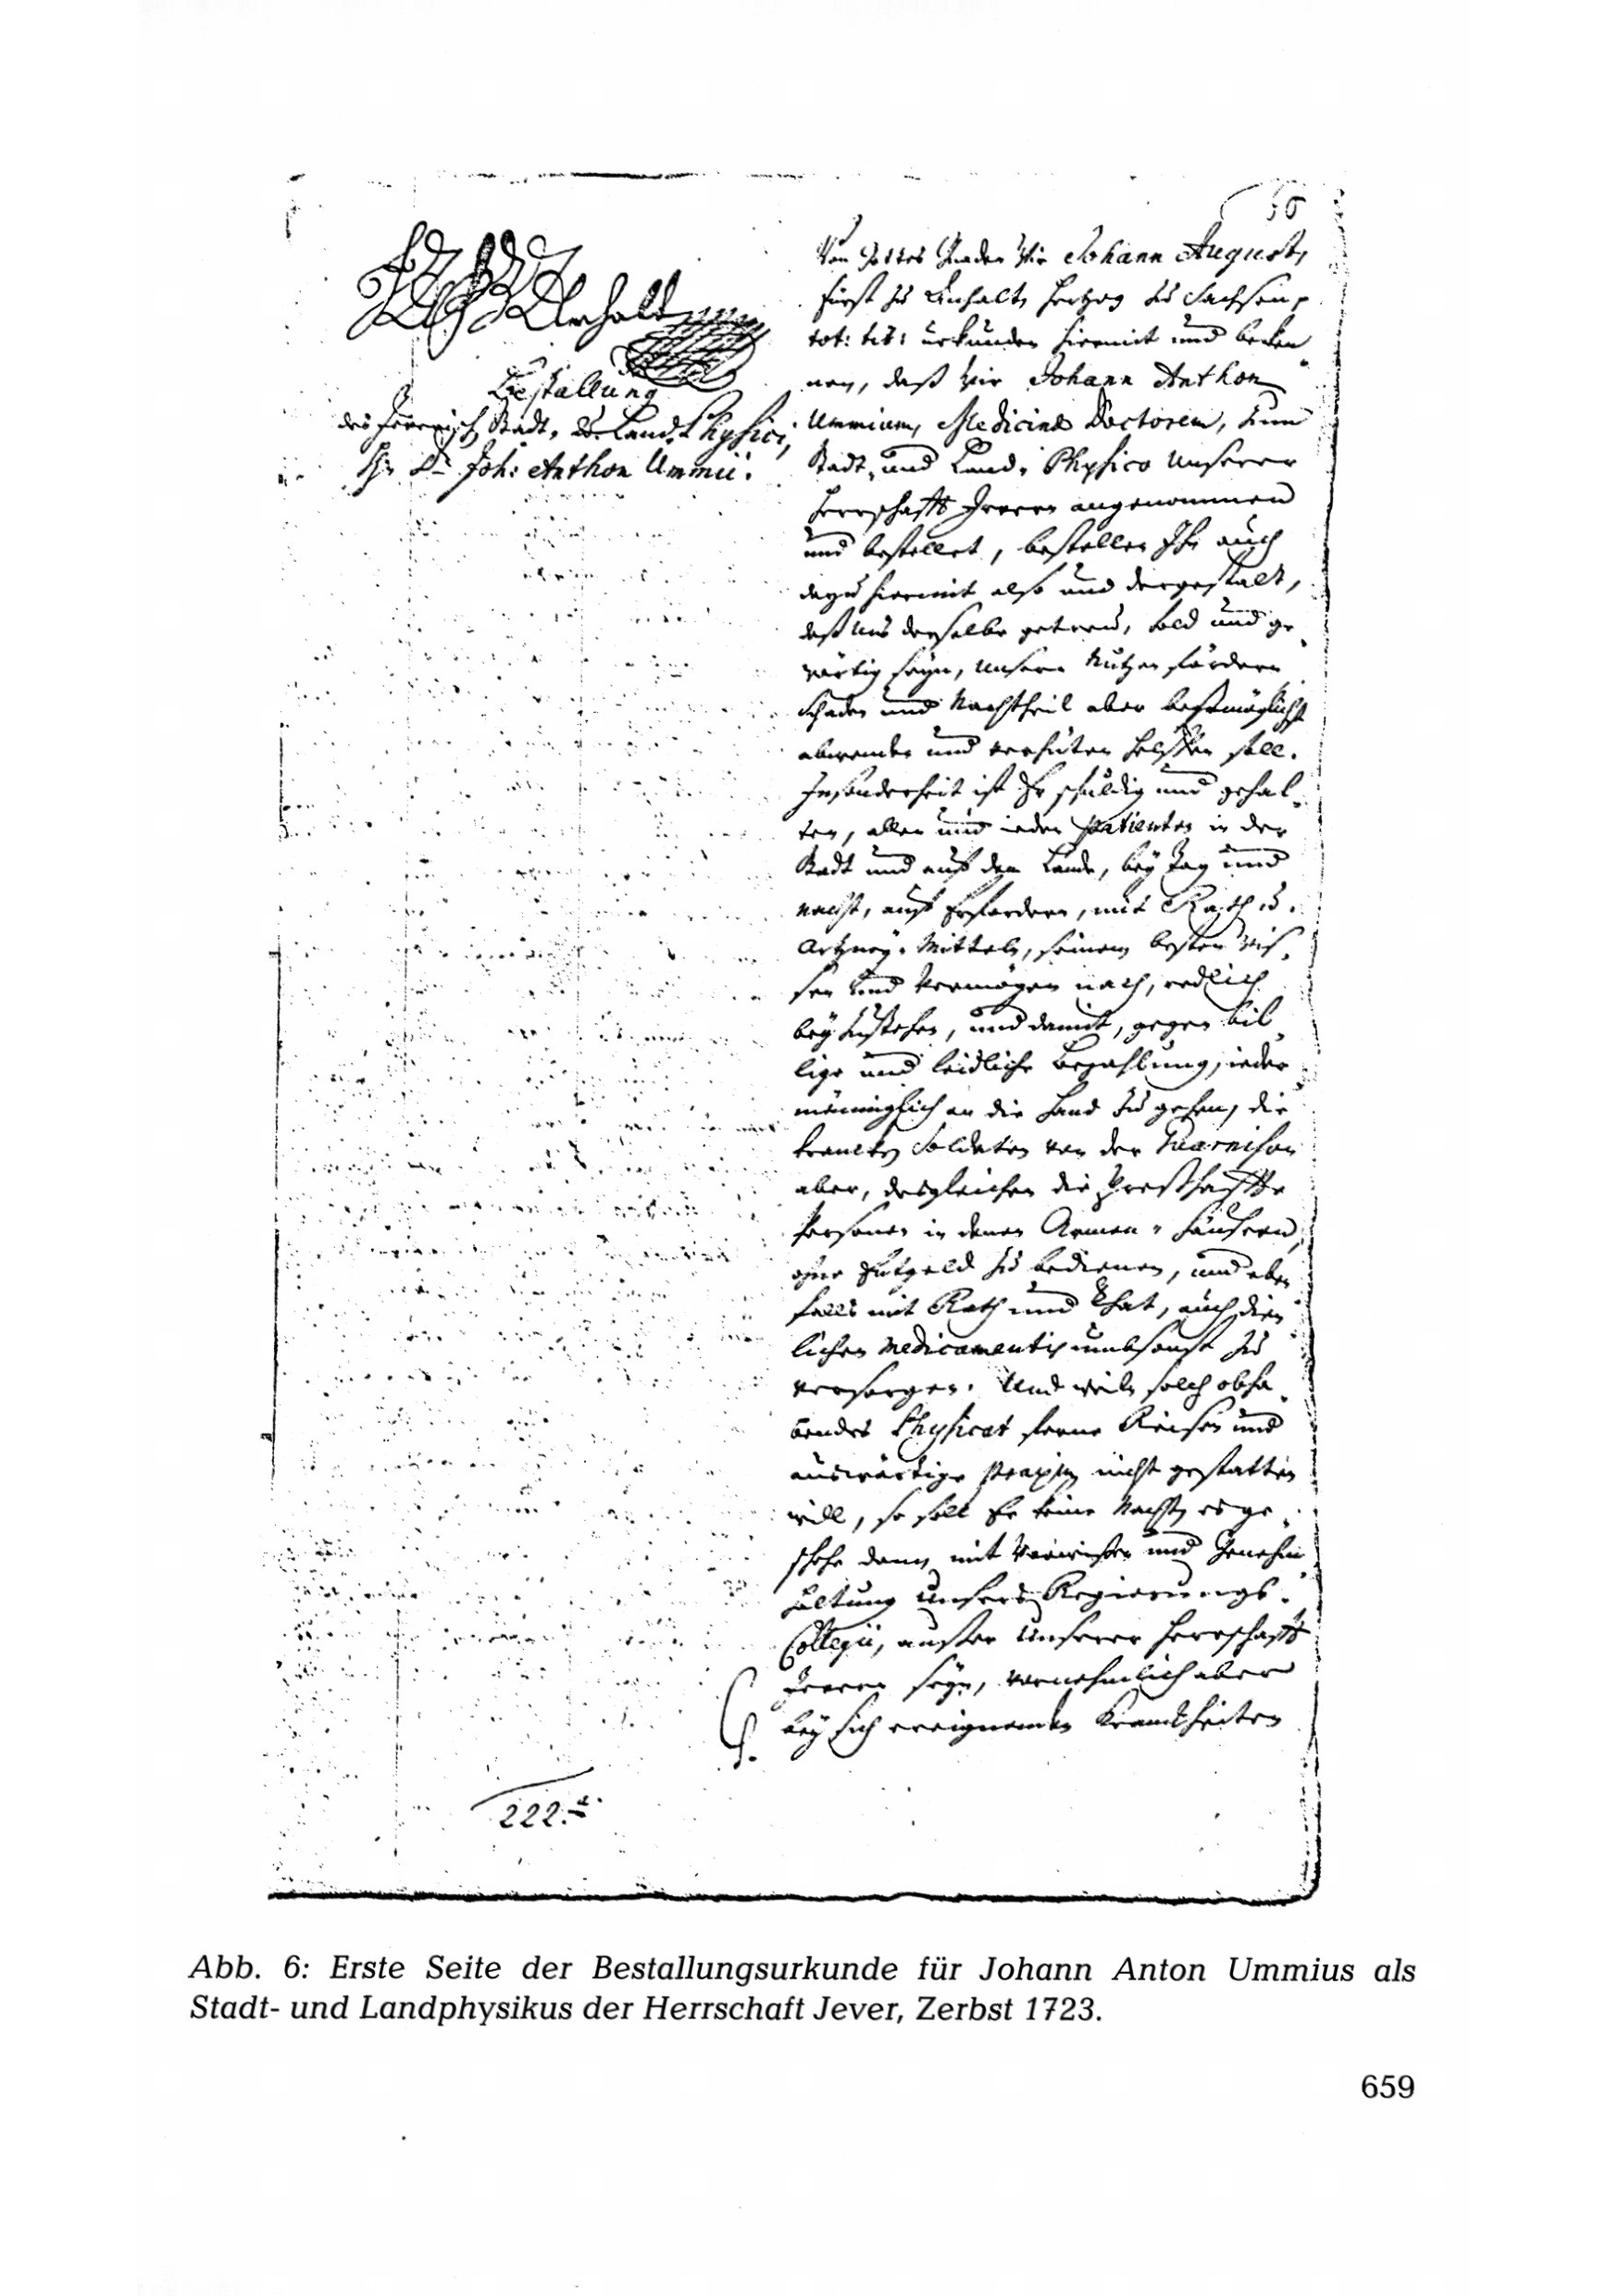 56
Anhalt
Bestallung
des Jeverisch. Stadt- u. Land-Physici,
H. Dr. Joh: Anthon Ummii.
Von Gottes Gnaden Wir Johann August,
Fürst zu Anhalt, Hertzog zu Sachsen,
tot: tit: uhrkunden hiermit und beken-
nen, daß Wir Johann Anthon
Ummium, Medicinæ Doctorem, zum
Stadt- und Land-Physico Unserer
Herrschafft Jevern angenommen
und bestellet, bestellen Ihn auch
dazu hiermit also und dergestalt,
daß Uns derselbe getreu, hold und ge-
wärtig seyn, Unsern Nutzen fördern
Schaden und Nachtheil aber bestmöglichst
abwenden und verhüten helffen soll.
Insonderheit ist Er schuldig und gehal-
ten, allen und ieden Patienten in der
Stadt und auf dem Lande, bey Tag und
Nacht, auf Erfordern, mit Rath u.
Artzney-Mitteln, seinem besten Wis-
sen und Vermögen nach, redlich
beyzustehen, und damit, gegen bil-
lige und leidliche Bezahlung, ieder-
männiglich an die Hand zu gehen, die
krancken Soldaten von der Guarnison
aber, desgleichen die Presthaffte
Personen in denen Armen-Häusern,
ohne Entgeld zu bedienen, und eben-
falls mit Rath und That, auch dien-
lichen Medicamentis umbsonst zu
versorgen. Und weiln solch obha-
bendes Physicat ferne Reisen und
auswärtige Praxin nicht gestatten
will, so soll Er keine Nacht, es ge-
schehe dann mit Vorwissen und Genehm-
haltung Unsers Regierungs-
Collegii, ausser Unserer Herrschafft
Jevern seyn, vornehmlich aber
bey sich ereignenden Kranckheiten
222.
Abb. 6: Erste Seite der Bestallungsurkunde für Johann Anton Ummius als
Stadt- und Landphysikus der Herrschaft Jever, Zerbst 1723.
659